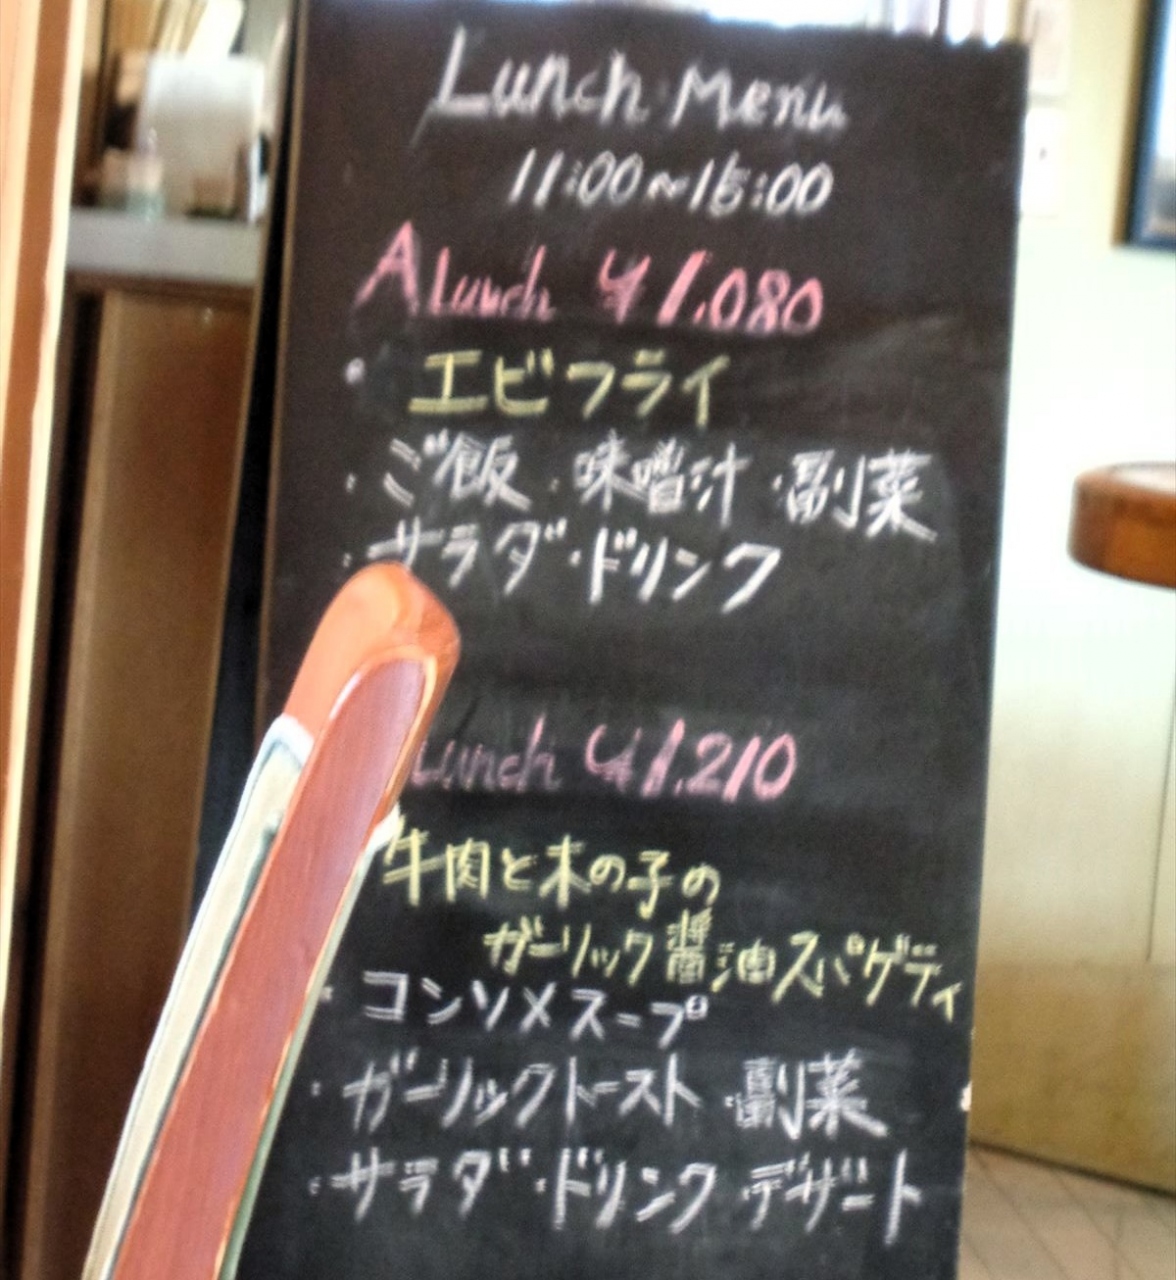 Lunch Menu
11:00~15:00
A Lunch ¥1.080
・エビフライ
・ご飯・味噌汁・副菜
・サラダ・ドリンク
Lunch ¥1.210
牛肉と木の子の
ガーリック醤油スパゲティ
・コンソメスープ
・ガーリックトースト・副菜
・サラダ・ドリンク・デザート